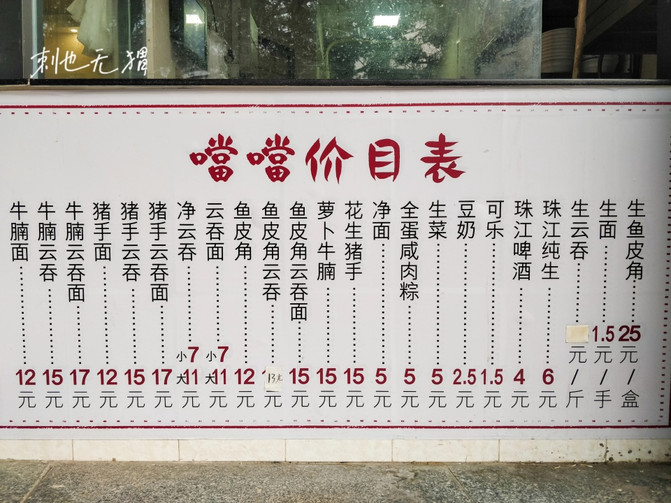 刺也无猬
噹噹价目表
牛腩面……12元
牛腩云吞……15元
牛腩云吞面……17元
猪手面……12元
猪手云吞……15元
猪手云吞面……17元
净云吞……小7大11元
云吞面……小7大11元
鱼皮角……12元
鱼皮角云吞……13元
鱼皮角云吞面……15元
萝卜牛腩……15元
花生猪手……15元
净面……5元
全蛋咸肉粽……5元
生菜……5元
豆奶……2.5元
可乐……1.5元
珠江啤酒……4元
珠江纯生……6元
生云吞……元/斤
生面……1.5元/手
生鱼皮角……25元/盒